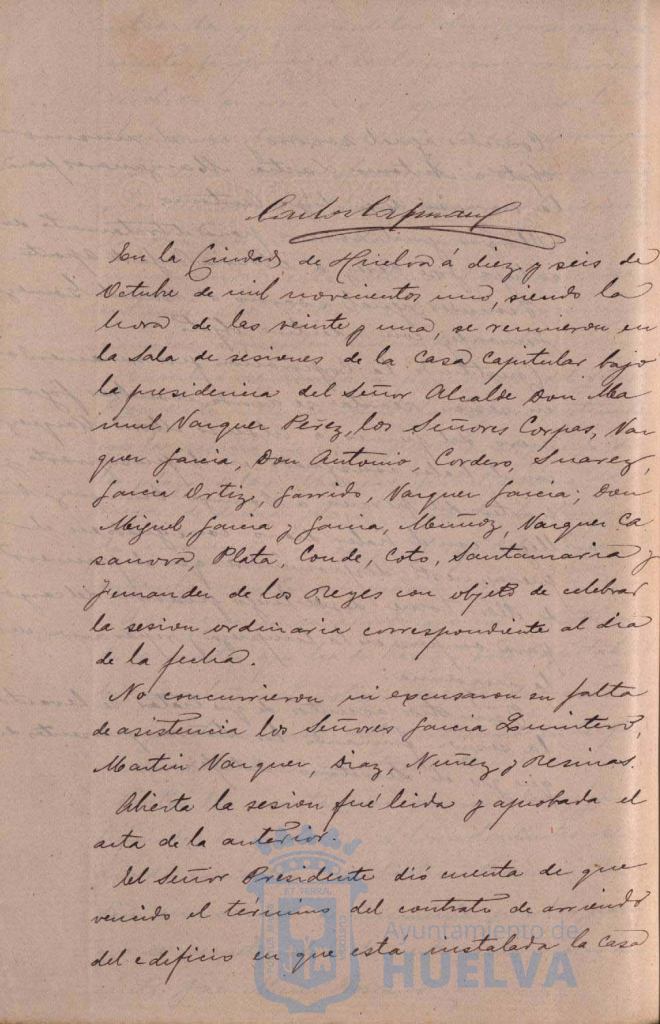 En la Ciudad, de Huelva á diez y seis de
Octubre de mil novecientos uno, siendo la
hora de las veinte y una, se reunieron en
la Sala de sesiones de la Casa Capitular bajo
la presidencia del Señor Alcalde Don Ma
nuel Vazquez Pérez, los Señores Corpas, Vaz
quez Garcia, Don Antonio, Cordero, Suarez,
Garcia Ortiz, Garrido, Vazquez Garcia; Don
Miguel Garcia y Garcia, Muñoz, Vazquez Ca
sanova, Plata, Conde, Coto, Santamaria y
Fernandez de los Reyes con objeto de celebrar
la sesion ordinaria correspondiente al dia
de la fecha.
No concurrieron ni excusaron su falta
de asistencia los Señores Garcia Quintero,
Martin Vazquez, Diaz, Nuñez y Resinas.
Abierta la sesion fué leida y aprobada el
acta de la anterior.
El Señor Presidente dió cuenta de que
vencido el término del contrato de arriendo
del edificio en que está instalada la Casa
Ayuntamiento de
HUELVA